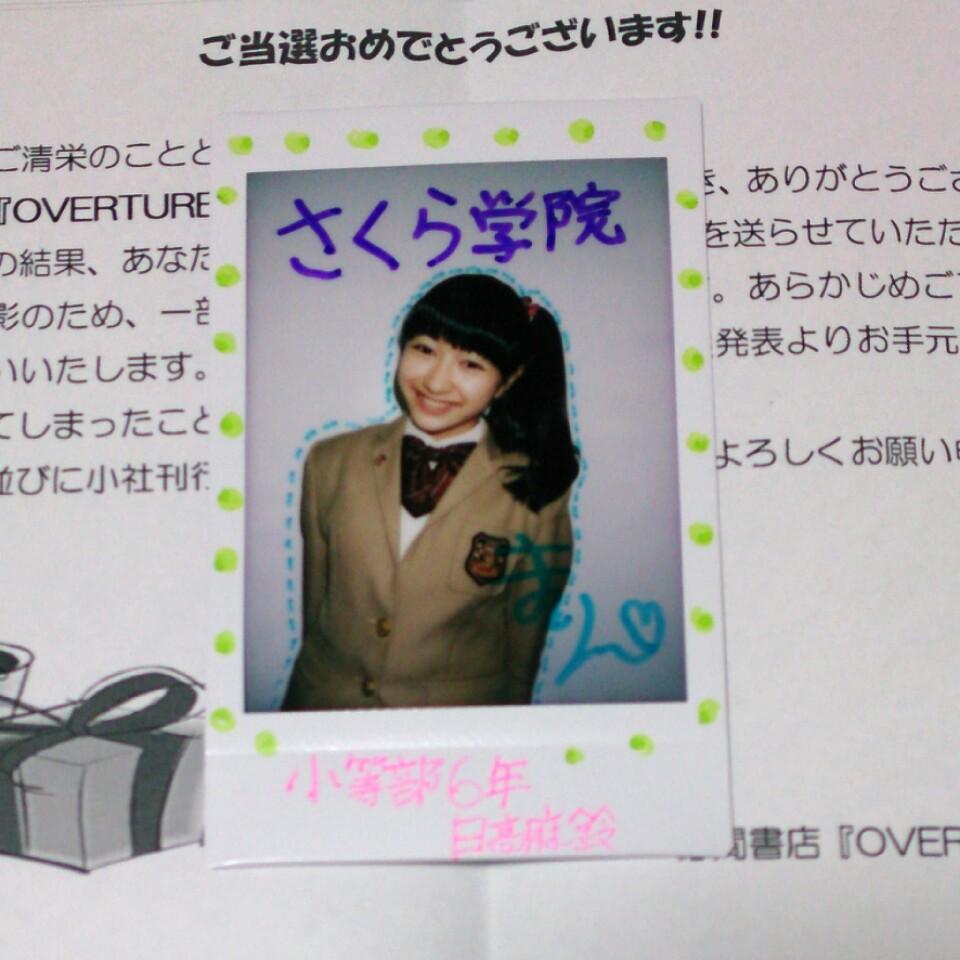 ご当選おめでとうございます!!
ご清栄のことと
き、ありがとうござ
『OVERTURE
を送らせていただ
の結果、あなた
。あらかじめご
影のため、一部
発表よりお手元
いいたします。
てしまったこと
よろしくお願い申
並びに小社刊行
さくら学院
まりん♡
小等部6年
日髙麻鈴
書店『OVER